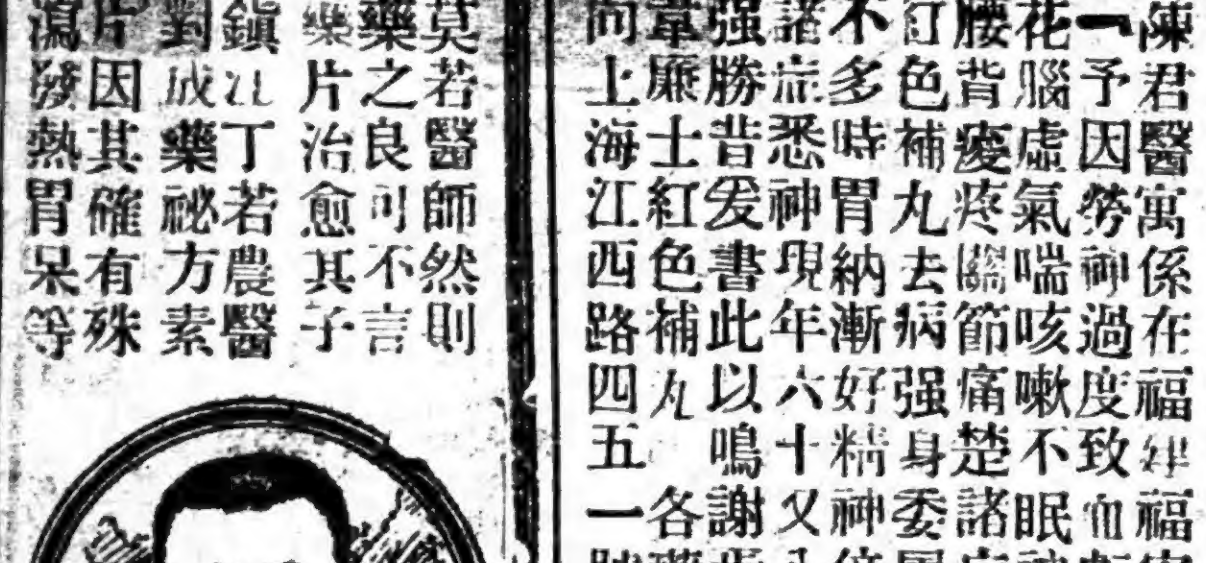 陳君醫寓係在福建福
一予因勞神過度致血
花腦虛氣喘咳嗽不眠
腰背痠疼關節痛楚諸
紅色補丸去病强身委
不多時胃納漸好精神
諸症悉神現年六十又
强勝昔爰書此以鳴謝
韋廉士紅色補丸 各
向上海江西路四五一
莫若醫師然則
藥之良可不言
藥片治愈其子
鎮江丁若農醫
對成藥祕方素
片因其確有殊
瀉發熱胃呆等